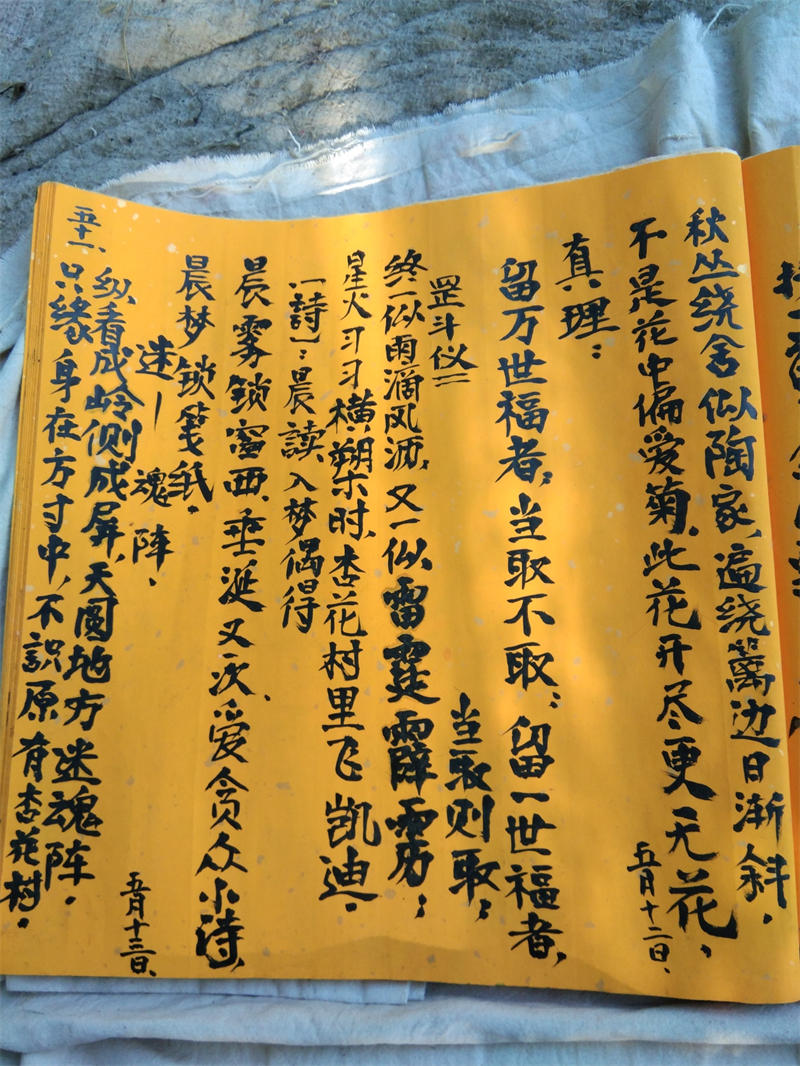 秋丛绕舍似陶家，遍绕篱边日渐斜，
不是花中偏爱菊，此花开尽更无花，
五月十二日、
真理：
留万世福者，当取不取；留一世福者，
当取则取；
罡斗仪二
终一似雨滴风洒，又一似雷霆霹雳；
星火习习横槊时，杏花村里飞凯迪。
「詩」：晨读入梦偶得
晨雾锁窗西、垂涎又次、爱贪众小诗，
晨梦锁笺纸。
迷魂阵、
五十一、纵看成岭侧成屏，天圆地方迷魂阵。
只缘身在方寸中，不識原有杏花村。
五月十三日、